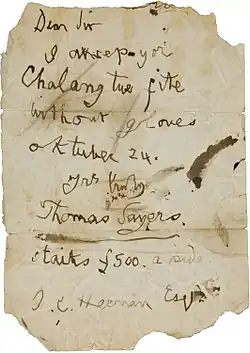 Dear Sir
I aksep yor
Chalang tue fite
without gloves
oktuber 24.
Yrs truly
Thomas Sayers.
staiks £500. a side
J. C. Heenan Esq